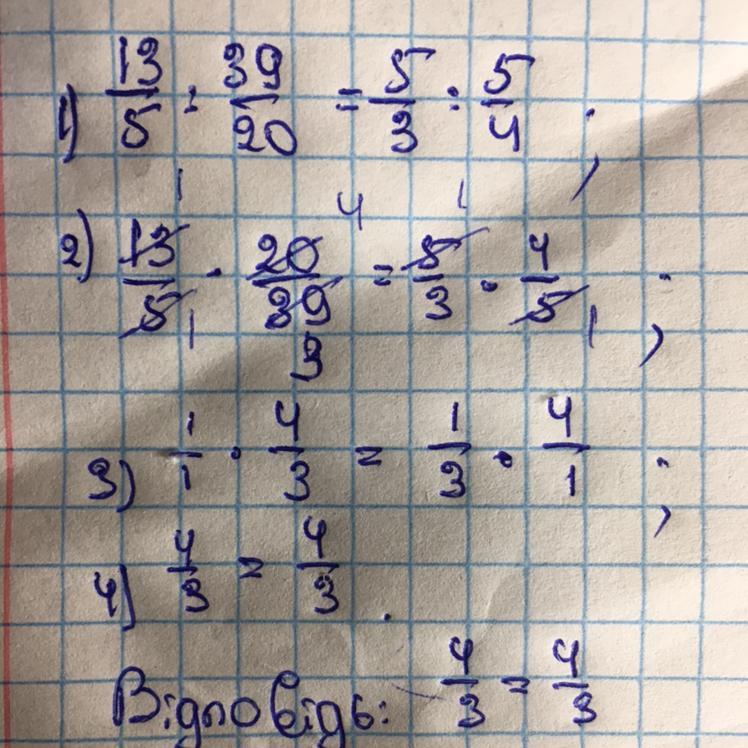 1) 13/5 : 39/20 = 5/3 : 5/4 ;
2) 13/5 · 20/39 = 5/3 · 4/5 ;
1 1 4 3 1 1
3) 1/1 · 4/3 = 1/3 · 4/1 ;
4) 4/3 = 4/3 .
Відповідь: 4/3 = 4/3